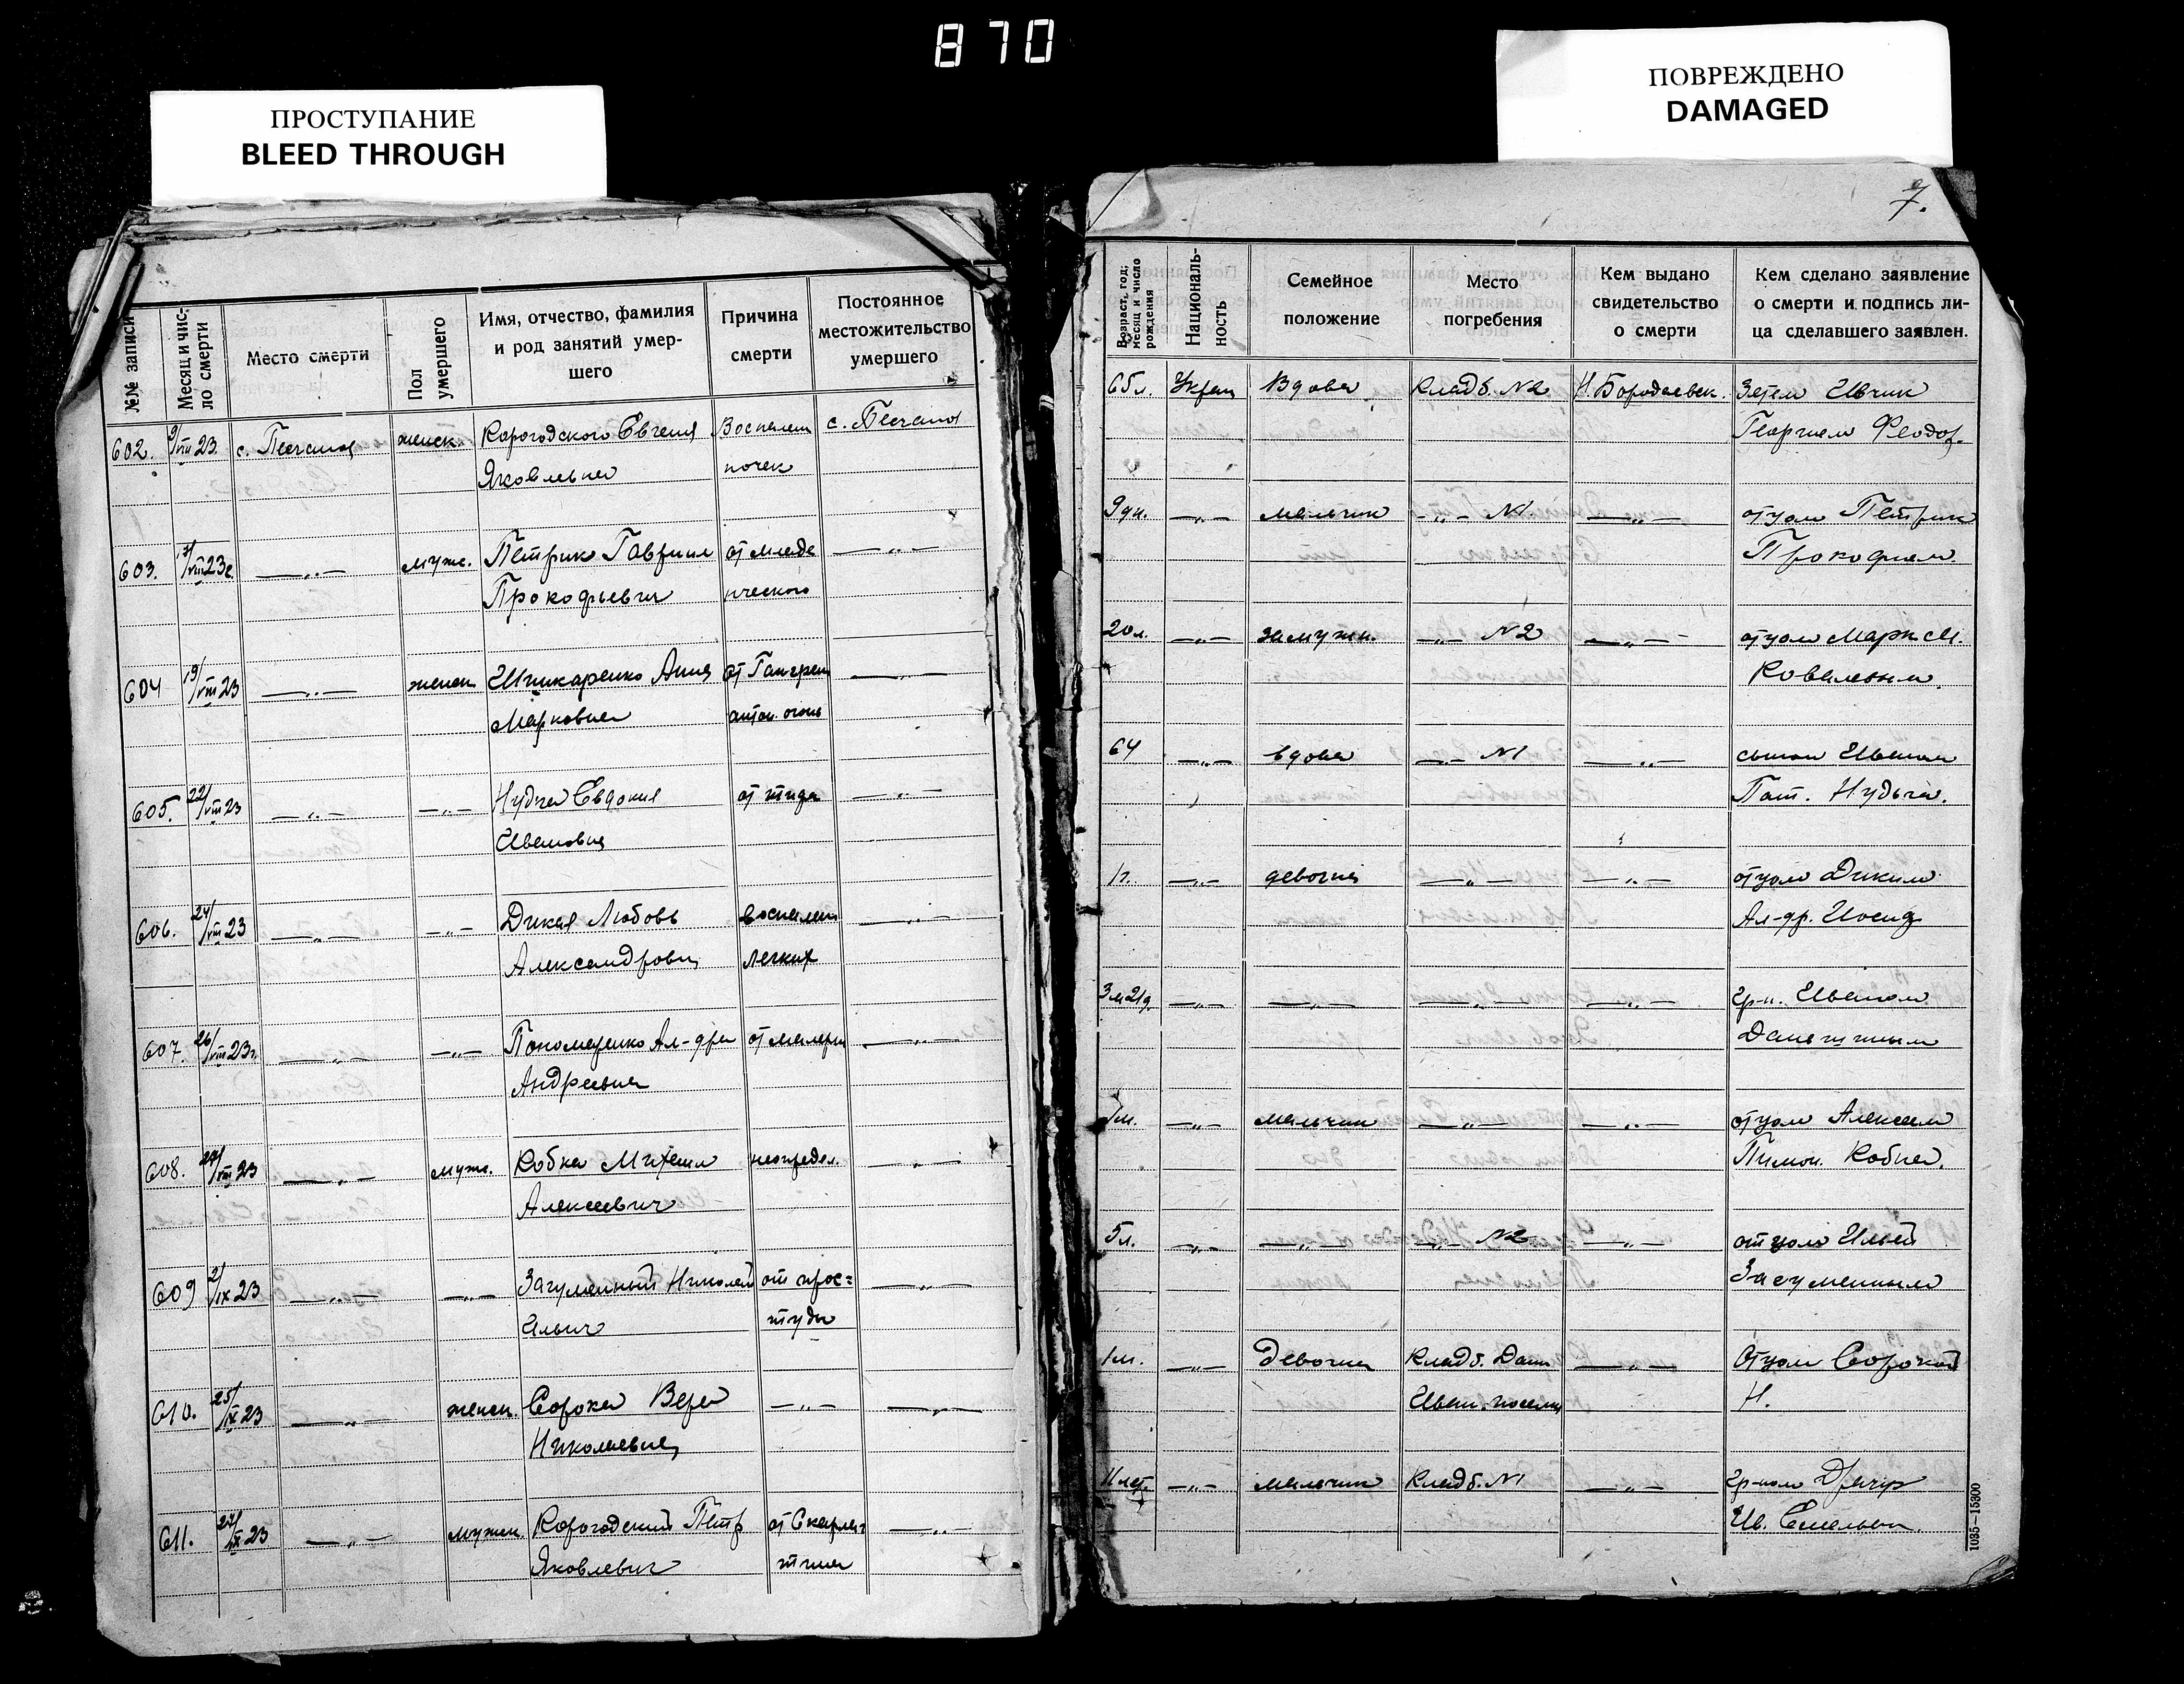 870
ПРОСТУПАНИЕ
BLEED THROUGH
ПОВРЕЖДЕНО
DAMAGED
7.
№№ записи
Месяц и чис-
ло смерти
Место смерти
Пол
умершего
Имя, отчество, фамилия
и род занятий умер-
шего
Причина
смерти
Постоянное
местожительство
умершего
Возраст, год;
месяц и число
рождения
Националь-
ность
Семейное
положение
Место
погребения
Кем выдано
свидетельство
о смерти
Кем сделано заявление
о смерти и подпись ли-
ца сделавшего заявлен.
602. 9/VIII 23. с. Песчаное женск. Корогодского Евгения Воспален с. Песчаное
Яковлевна почек
603. /VIII 23г. —„— мужс. Петрик Гавриил от младе —„—
Прокофьевич нческого
604 19/VIII 23 —„— женск Шпикаренко Анна от Гангрен —„—
Марковна антон. огонь
605. 22/VIII 23 —„— —„— Нудьга Евдокия от тифа —„—
Ивановна
606. 24/VIII 23 —„— —„— Дикая Любовь воспален —„—
Александровн легких
607. 26/VIII 23г. —„— —„— Пономаренко Ал-дра от малярии —„—
Андреевна
608. /VIII 23 —„— мужс. Кобка Михаил неопредел. —„—
Алексеевич
609 2/IX 23 —„— —„— Загуменный Николай от прос=
туды —„—
Ильич
610. 25/IX 23 —„— женск. Сорока Вера —„— —„—
Николаевна
611. 27/IX 23 —„— мужск. Корогодский Петр от Скарла= —„—
Яковлевич тина
65л. Украин Вдова Кладб. №2 Н. Бородаевск. Зятем Ивчик
Георгием Феодор.
9дн. —„— мальчик —„— №1 —„— отцом Петрик
Прокофием.
20л. —„— замужн. —„— №2 —„— отцом Марк М.
Ковалевым.
64 —„— вдова —„— №1 —„— сыном Иваном
Пат. Нудьга.
1г. —„— девочка —„— —„— отцом Диким
Ал-др. Иосиф
3м 21д. —„— —„— —„— —„— гр-н. Иваном
1м. —„— мальчик —„— —„— отцом Алексеем
Пимон. Кобка.
5л. —„— —„— —„— №2 —„— отцом Ильей
Загуменным
1м. —„— Девочка Кладб. Дани —„— Отцом Сорокой
Иван. поселк Н.
11 лет. —„— мальчик Кладб. №1 —„— гр-ном
Ив. Емельян.
1035—15300